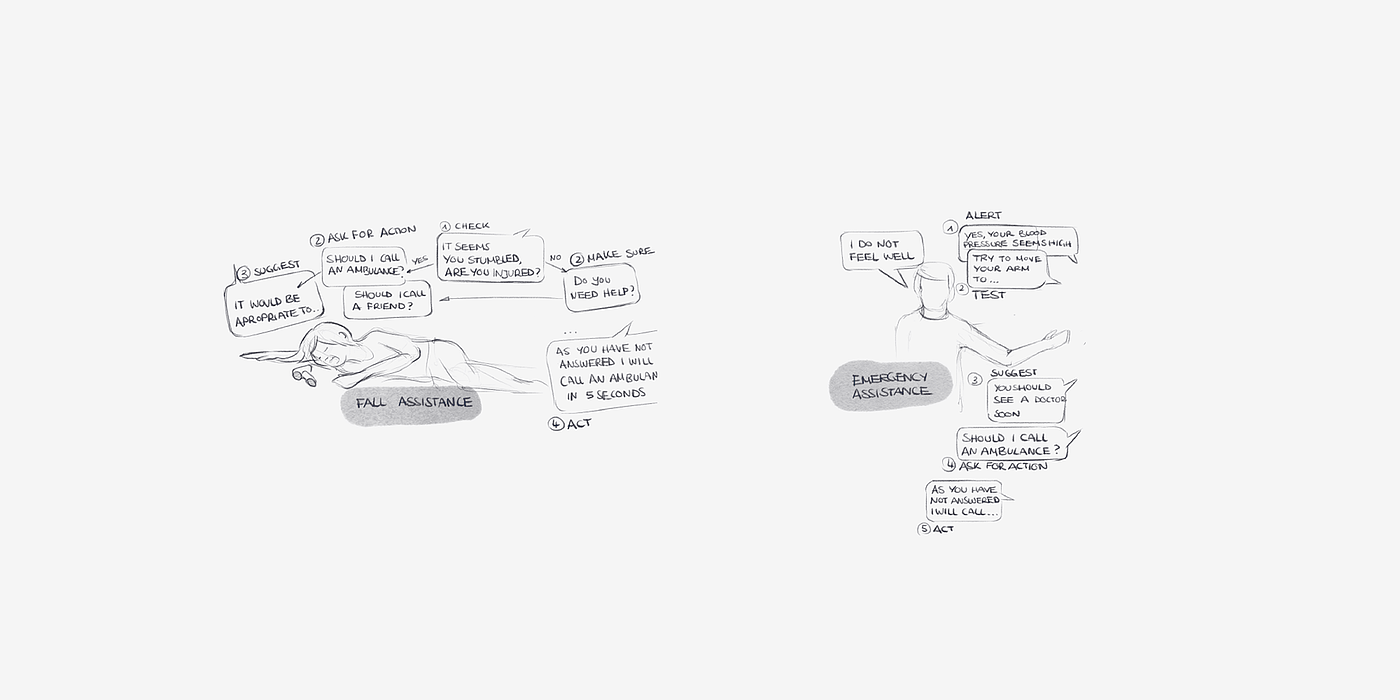 ① CHECK
IT SEEMS
YOU STUMBLED,
ARE YOU INJURED?
YES
② ASK FOR ACTION
SHOULD I CALL
AN AMBULANCE?
SHOULD I CALL
A FRIEND?
③ SUGGEST
IT WOULD BE
APROPRIATE TO..
NO
② MAKE SURE
DO YOU
NEED HELP?
...
AS YOU HAVE NOT
ANSWERED I WILL
CALL AN AMBULAN
IN 5 SECONDS
④ ACT
FALL ASSISTANCE
I DO NOT
FEEL WELL
ALERT
①
YES, YOUR BLOOD
PRESSURE SEEMS HIGH
TRY TO MOVE
YOUR ARM
TO...
② TEST
EMERGENCY
ASSISTANCE
③ SUGGEST
YOU SHOULD
SEE A DOCTOR
SOON
SHOULD I CALL
AN AMBULANCE?
④ ASK FOR ACTION
AS YOU HAVE
NOT ANSWERED
I WILL CALL...
⑤ ACT